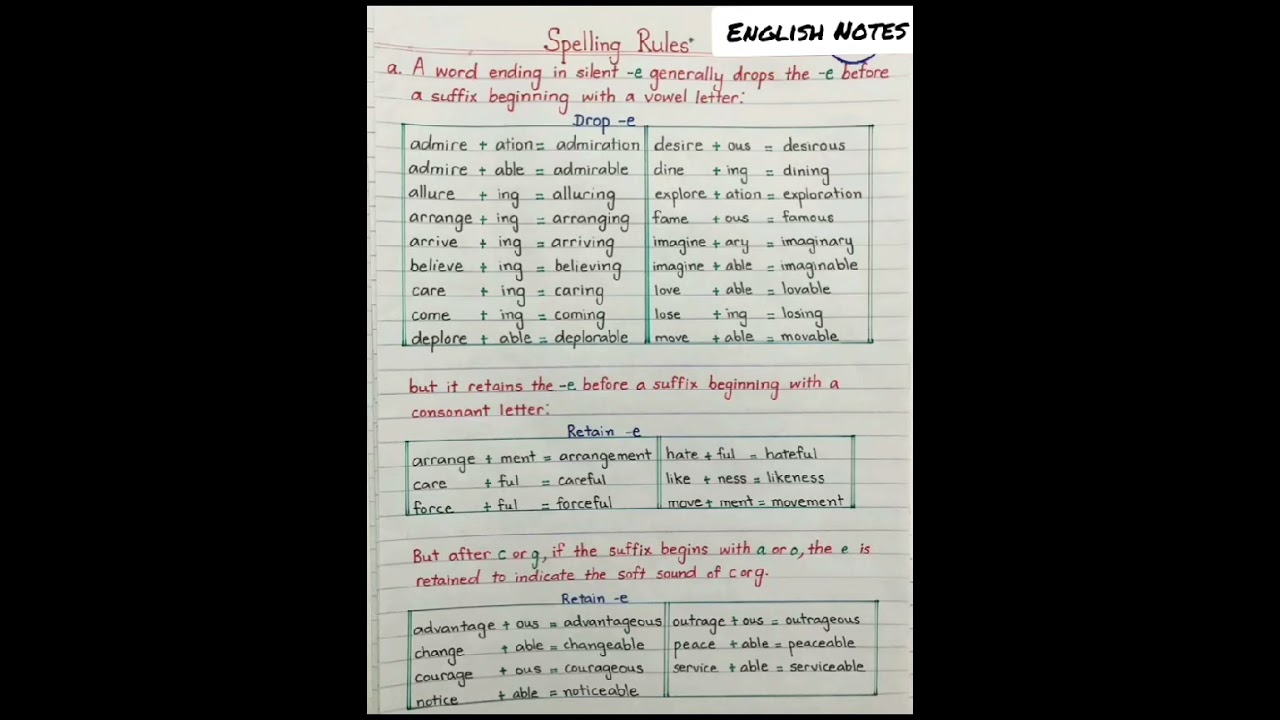 ENGLISH NOTES
Spelling Rules
a. A word ending in silent -e generally drops the -e before
a suffix beginning with a vowel letter:
Drop -e
admire + ation = admiration desire + ous = desirous
admire + able = admirable dine + ing = dining
allure + ing = alluring explore + ation = exploration
arrange + ing = arranging fame + ous = famous
arrive + ing = arriving imagine + ary = imaginary
believe + ing = believing imagine + able = imaginable
care + ing = caring love + able = lovable
come + ing = coming lose + ing = losing
deplore + able = deplorable move + able = movable
but it retains the -e before a suffix beginning with a
consonant letter:
Retain -e
arrange + ment = arrangement hate + ful = hateful
care + ful = careful like + ness = likeness
force + ful = forceful move + ment = movement
But after c or g, if the suffix begins with a or o, the e is
retained to indicate the soft sound of c or g.
Retain -e
advantage + ous = advantageous outrage + ous = outrageous
change + able = changeable peace + able = peaceable
courage + ous = courageous service + able = serviceable
notice + able = noticeable